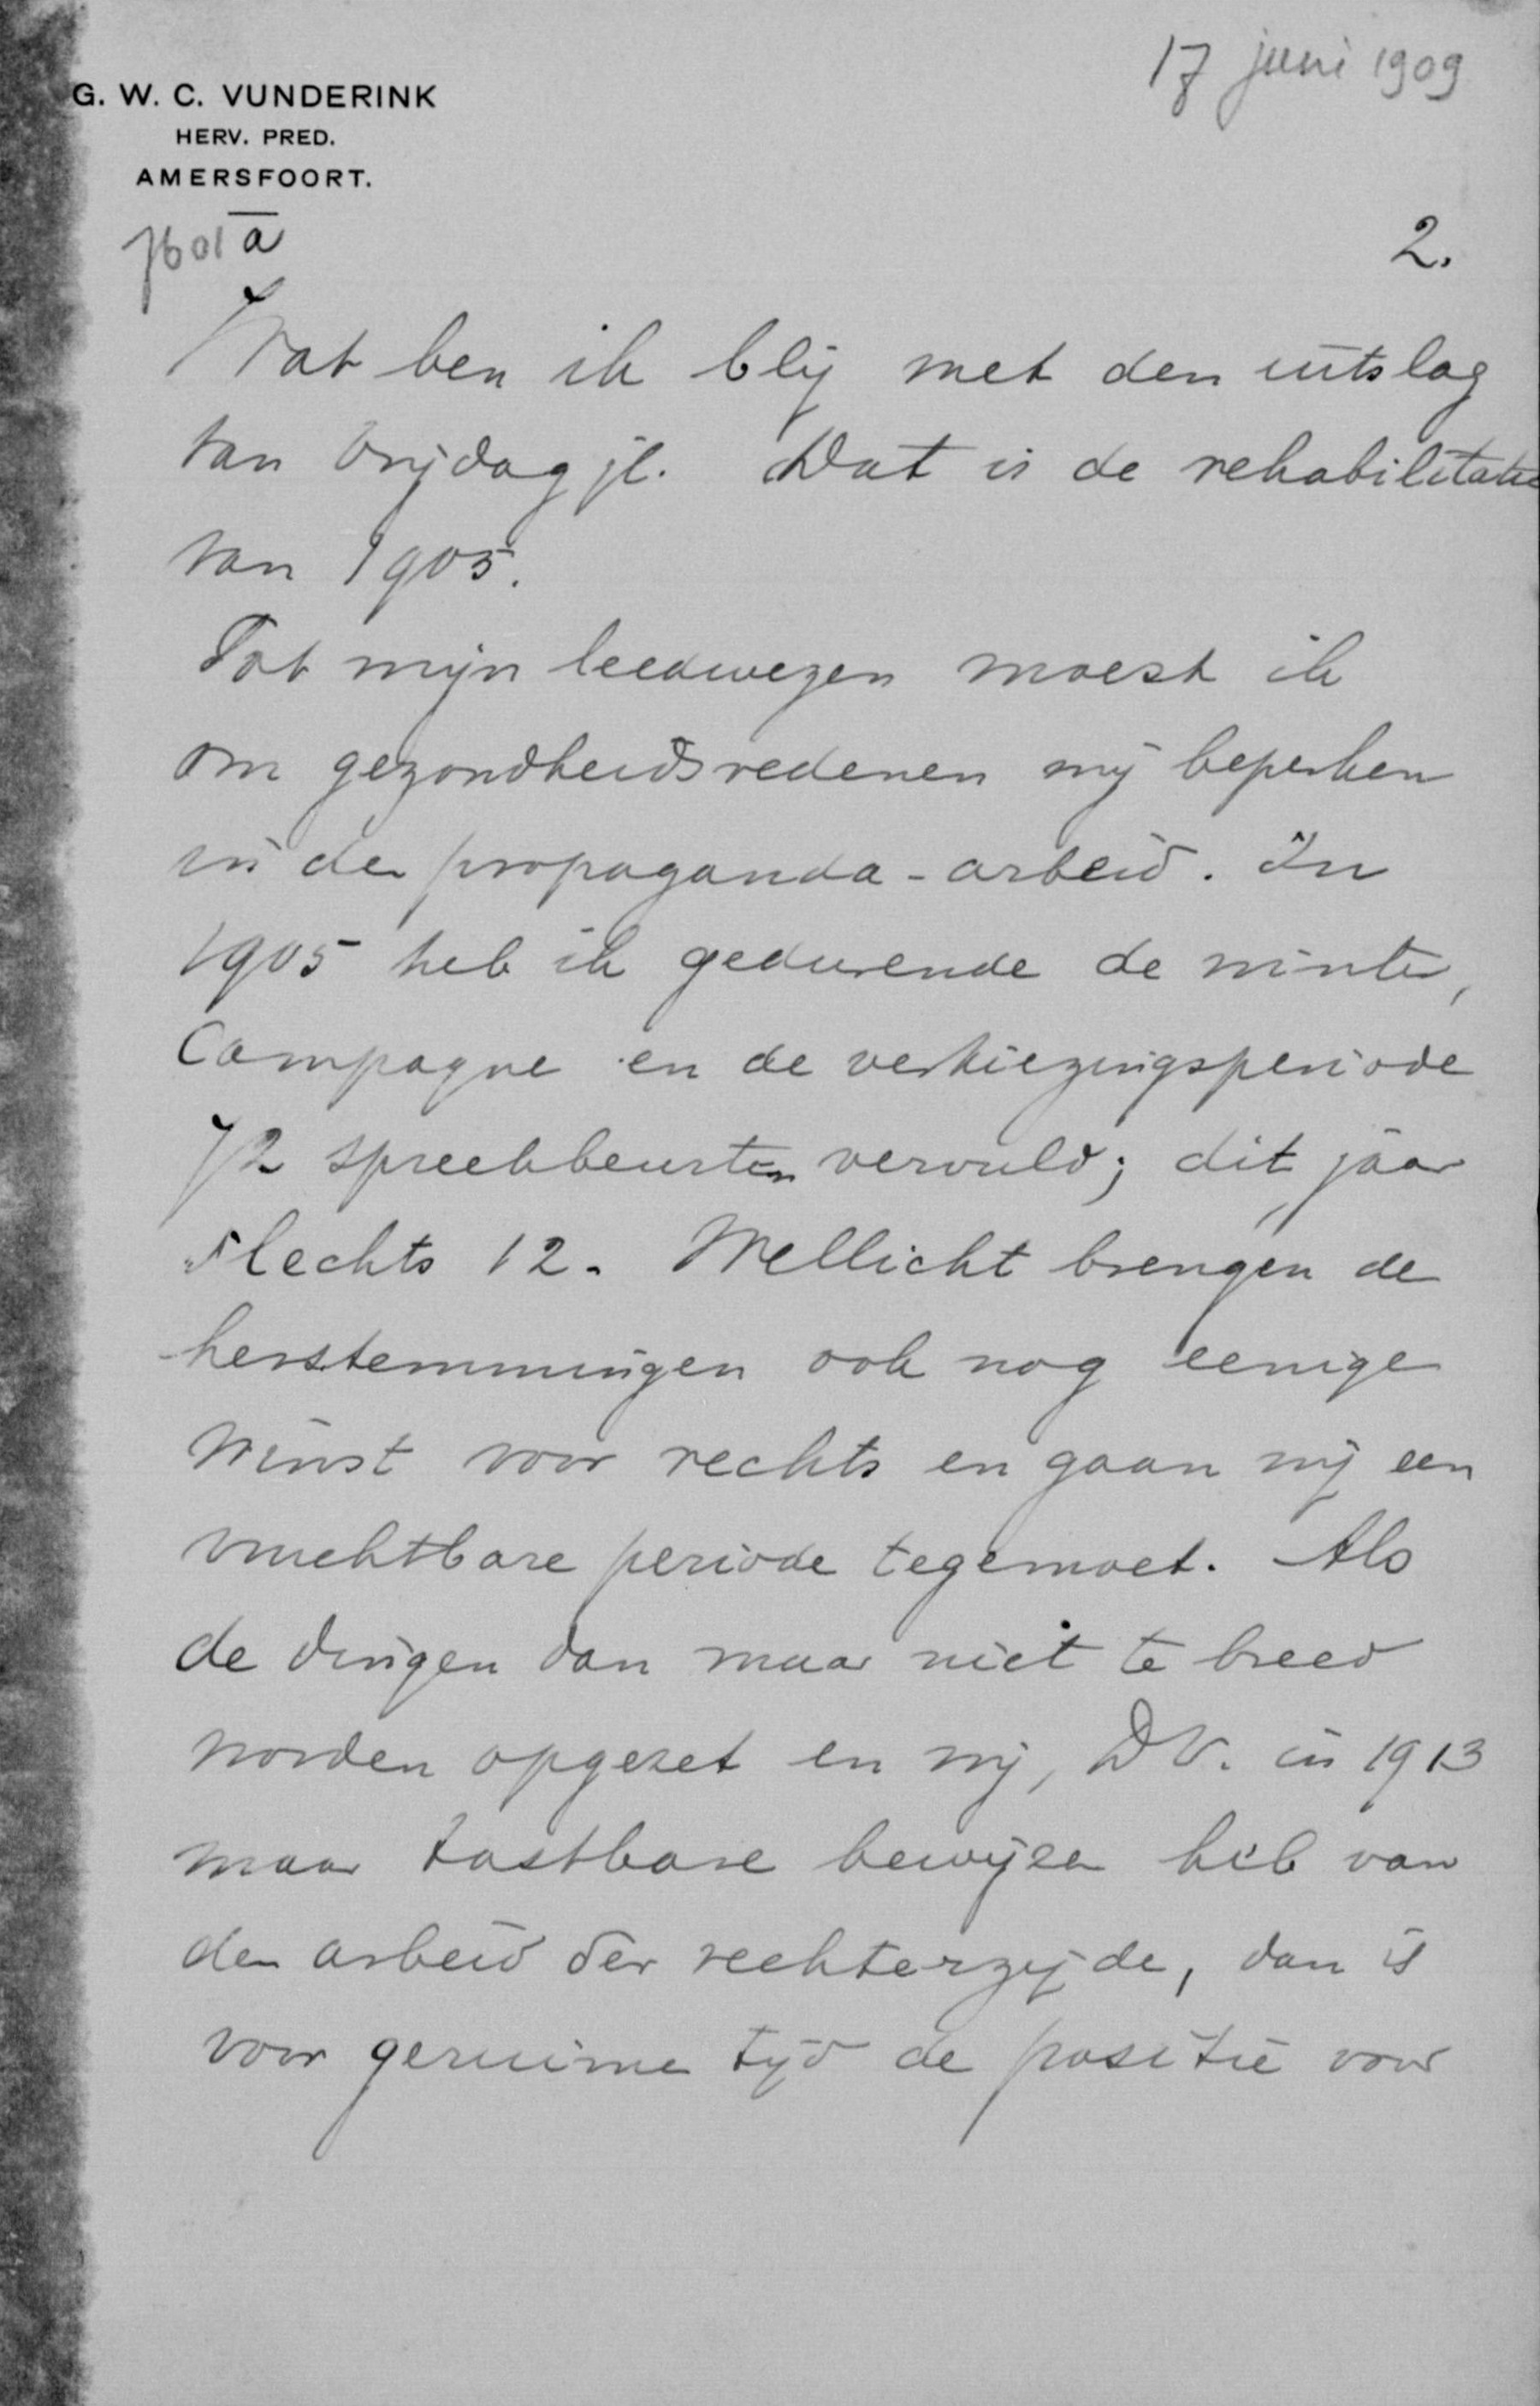 17 juni 1909
G. W. C. VUNDERINK
HERV. PRED.
AMERSFOORT.
7601a
2.
Wat ben ik blij met den uitslag
van Vrijdag jl. Dat is de rehabilitatie
van 1905.
Tot mijn leedwezen moest ik
om gezondheidsredenen mij beperken
in den propaganda-arbeid. In
1905 heb ik gedurende de winter,
Campagne en de verkiezingsperiode
72 spreekbeurten vervuld; dit jaar
slechts 12. Wellicht brengen de
herstemmingen ook nog eenige
Winst voor rechts en gaan wij een
vruchtbare periode tegemoet. Als
de dingen dan maar niet te breed
worden opgezet en wij, DV. in 1913
maar tastbare bewijzen heb van
den arbeid der rechterzijde, dan is
voor geruime tijd de positie voor